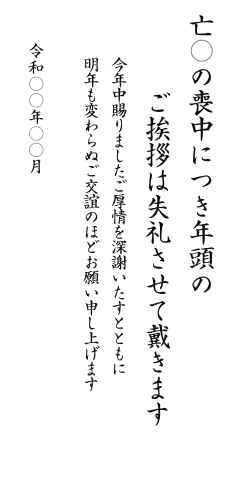 亡〇の喪中につき年頭の
ご挨拶は失礼させて戴きます
今年中賜りましたご厚情を深謝いたすとともに
明年も変わらぬご交誼のほどお願い申し上げます
令和〇〇年〇〇月